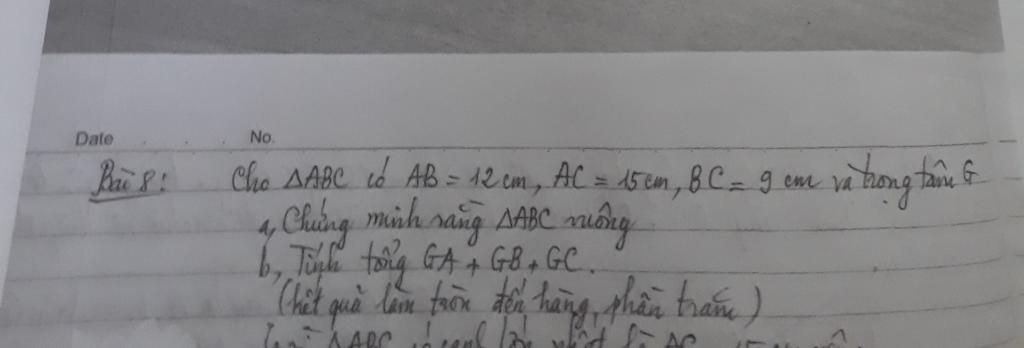 Date No.
Bài 8: Cho ΔABC có AB = 12cm, AC = 15cm, BC = 9 cm và trọng tâm G
a, Chứng minh rằng ΔABC vuông
b, Tính tổng GA + GB + GC.
(kết quả làm tròn đến hàng phần trăm)
ΔABC có cạnh lớn nhất là AC